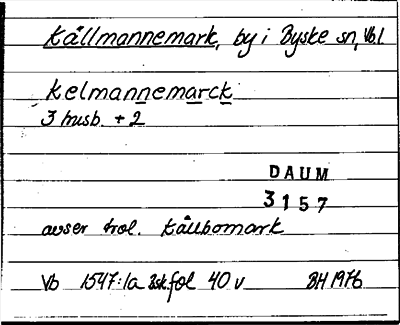 Källmannemark, by i Byske sn, Vb.l
Kelmannemarck
3 husb. + 2
DAUM
3157
avser trol. Källbomark
Vb 1547:1a Bsk fol 40 v BH 1976